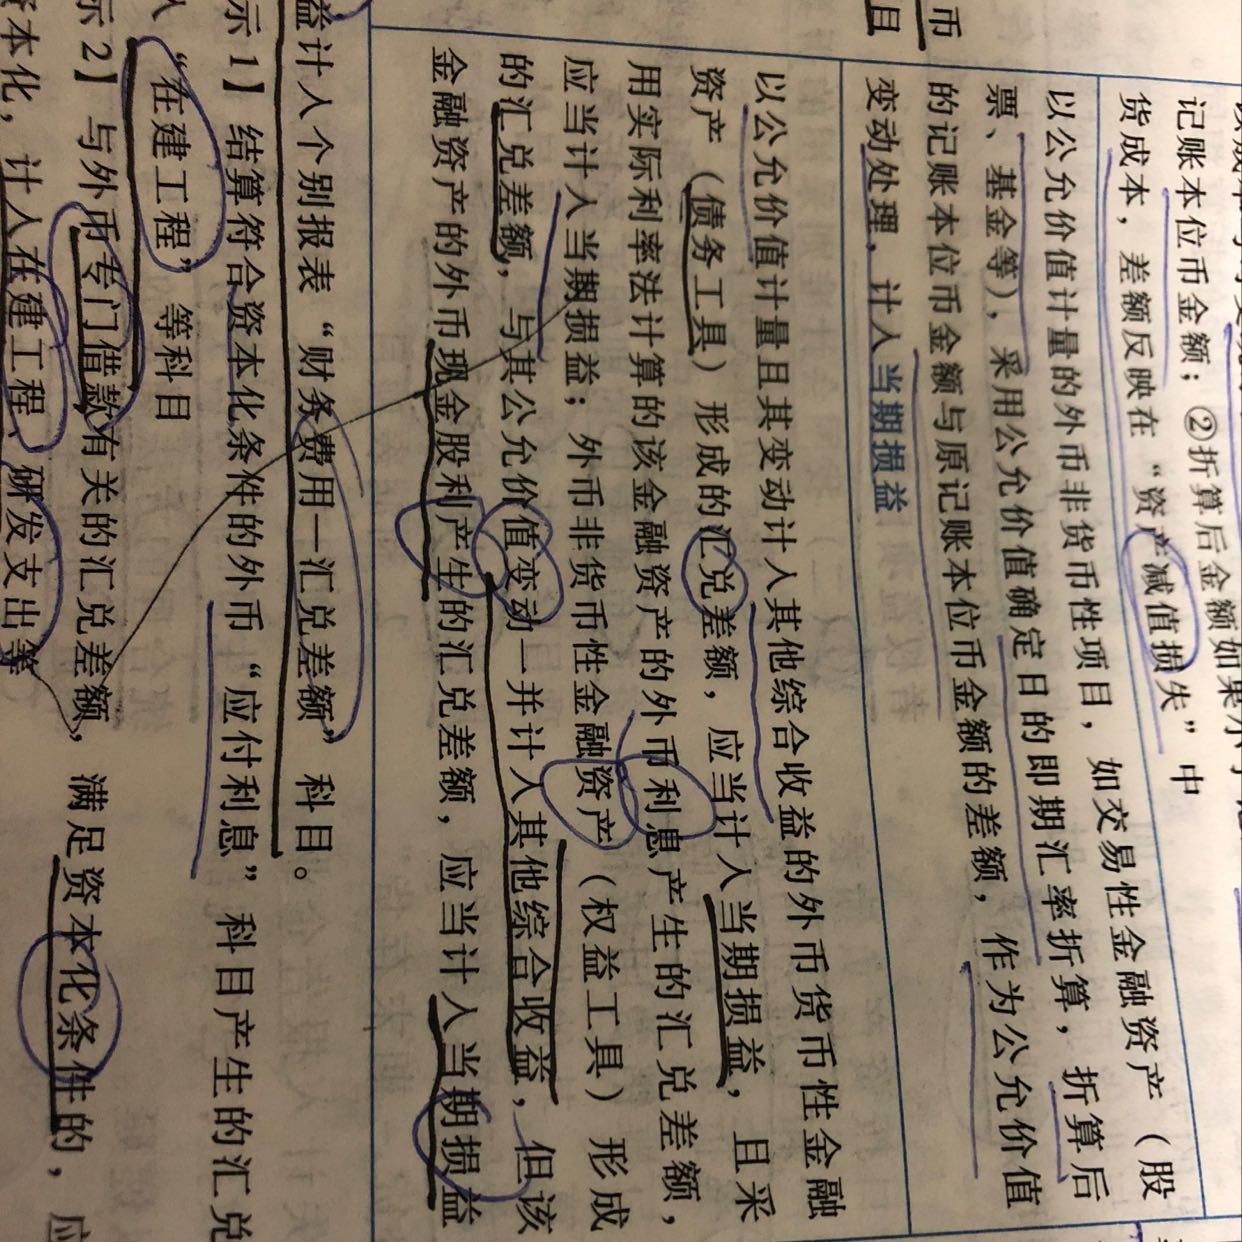 记账本位币金额；②折算后金额如果小于
货成本，差额反映在“资产减值损失”中
以公允价值计量的外币非货币性项目，如交易性金融资产（股
票、基金等），采用公允价值确定日的即期汇率折算，折算后
的记账本位币金额与原记账本位币金额的差额，作为公允价值
变动处理，计入当期损益
币
且
以公允价值计量且其变动计入其他综合收益的外币货币性金融
资产（债务工具）形成的汇兑差额，应当计入当期损益，且采
用实际利率法计算的该金融资产的外币利息产生的汇兑差额，
应当计入当期损益；外币非货币性金融资产（权益工具）形成
的汇兑差额，与其公允价值变动一并计入其他综合收益，但该
金融资产的外币现金股利产生的汇兑差额，应当计入当期损益
益计入个别报表“财务费用—汇兑差额”科目。
示1】结算符合资本化条件的外币“应付利息”科目产生的汇兑
入“在建工程”等科目
示2】与外币专门借款有关的汇兑差额，满足资本化条件的，应
资本化，计入在建工程、研发支出等